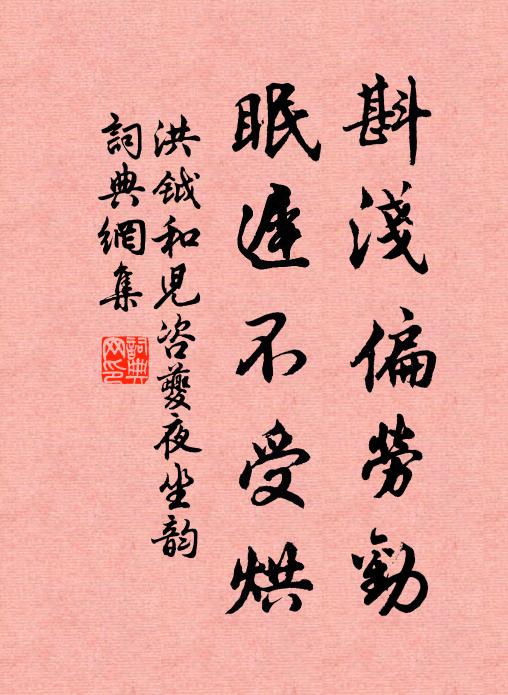 斟淺偏勞勸
眠遲不受烘
洪鉞和兒咨夔夜坐韵
詞典網集
詞典网印